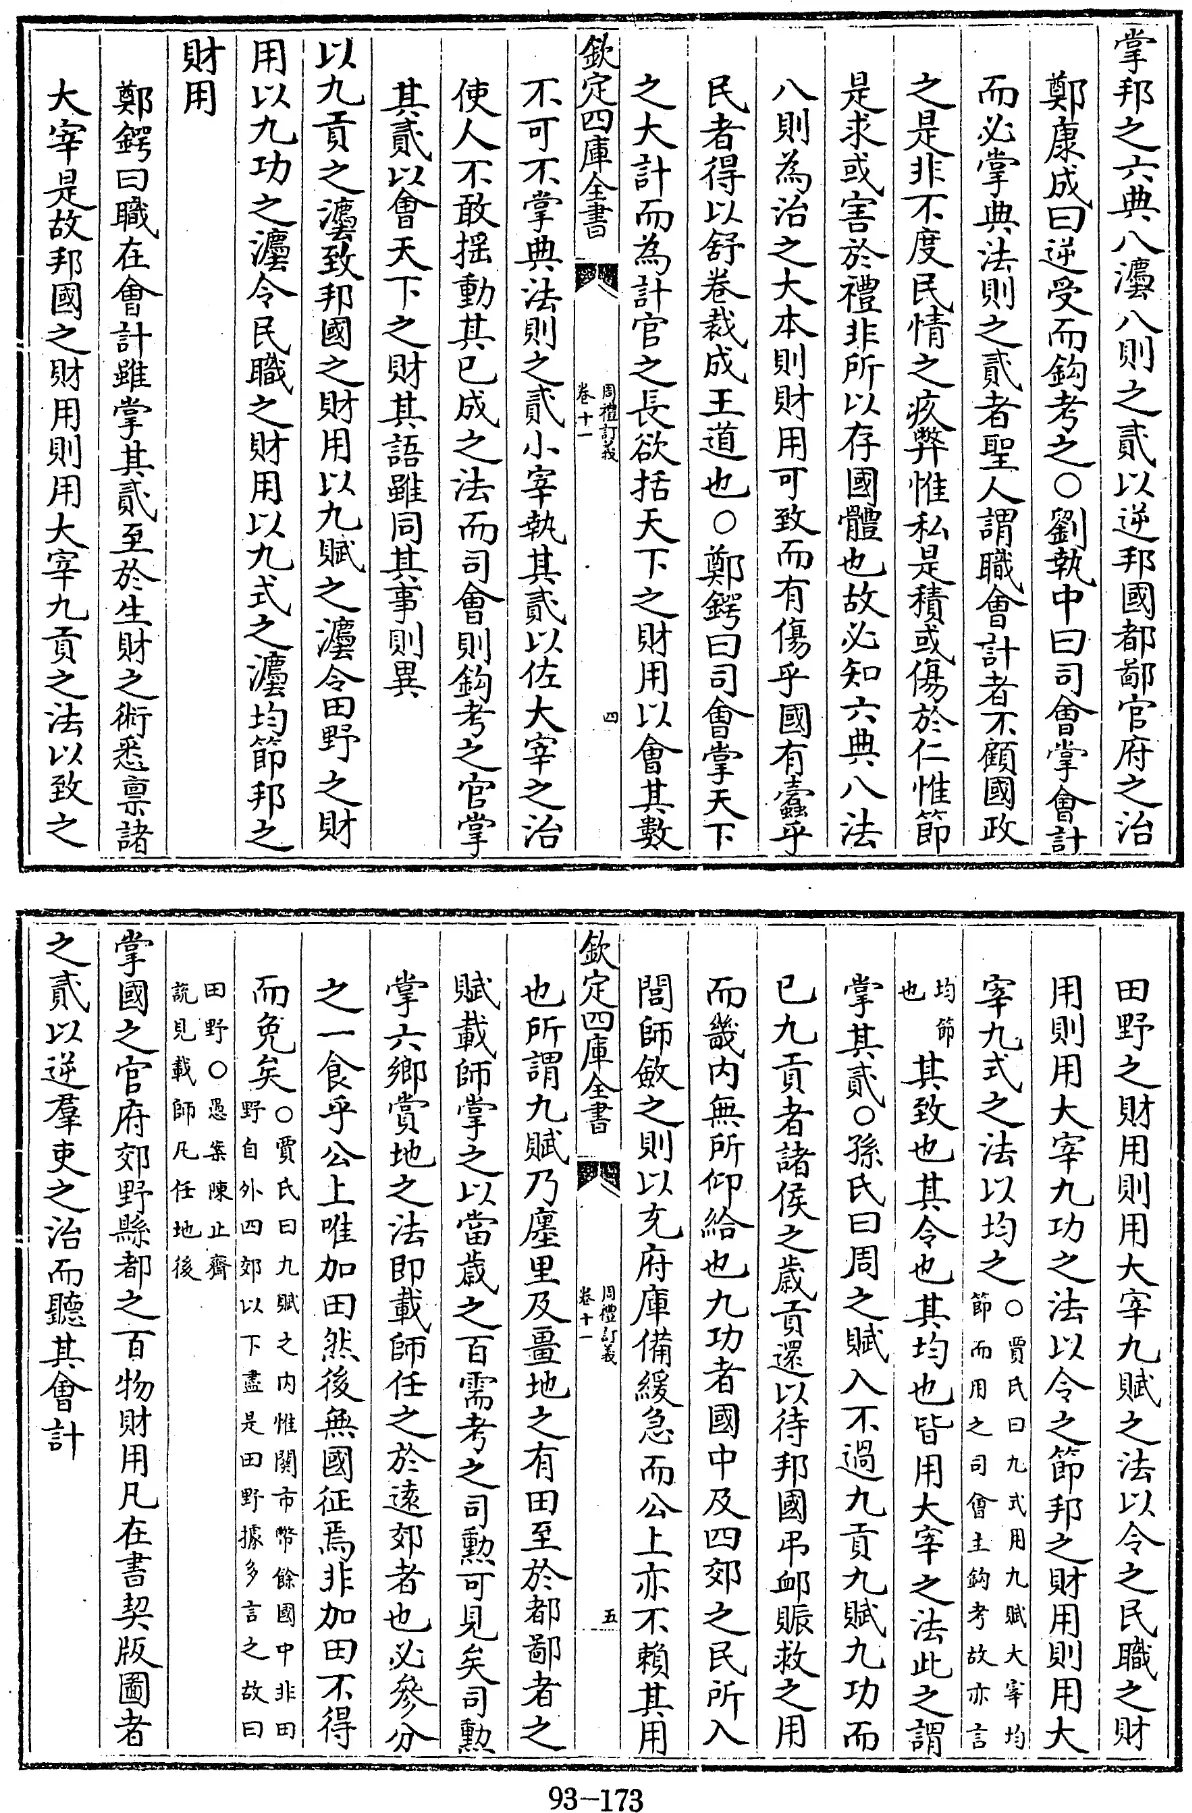 掌邦之六典八灋八則之貳以逆邦國都鄙官府之治
鄭康成曰逆受而鈎考之○劉執中曰司會掌會計
而必掌典法則之貳者聖人謂職會計者不顧國政
之是非不度民情之疚弊惟私是積或傷於仁惟節
是求或害於禮非所以存國體也故必知六典八法
八則為治之大本則財用可致而有傷乎國有蠧乎
民者得以舒卷裁成王道也○鄭鍔曰司會掌天下
之大計而為計官之長欲括天下之財用以會其數
欽定四庫全書
周禮訂義
卷十一
四
不可不掌典法則之貳小宰執其貳以佐大宰之治
使人不敢揺動其已成之法而司會則鈎考之官掌
其貳以會天下之財其語雖同其事則異
以九貢之灋致邦國之財用以九賦之灋令田野之財
用以九功之灋令民職之財用以九式之灋均節邦之
財用
鄭鍔曰職在會計雖掌其貳至於生財之術悉稟諸
大宰是故邦國之財用則用大宰九貢之法以致之
田野之財用則用大宰九賦之法以令之民職之財
用則用大宰九功之法以令之節邦之財用則用大
宰九式之法以均之○賈氏曰九式用九賦大宰均
節而用之司會主鈎考故亦言
均節
也
其致也其令也其均也皆用大宰之法此之謂
掌其貳○孫氏曰周之賦入不過九貢九賦九功而
已九貢者諸侯之歲貢還以待邦國弔卹賑救之用
而畿内無所仰給也九功者國中及四郊之民所入
閭師斂之則以充府庫備緩急而公上亦不賴其用
欽定四庫全書
周禮訂義
卷十一
五
也所謂九賦乃廛里及畺地之有田至於都鄙者之
賦載師掌之以當歲之百需考之司勲可見矣司勲
掌六鄉賞地之法即載師任之於逺郊者也必參分
之一食乎公上唯加田然後無國征焉非加田不得
而免矣○賈氏曰九賦之内惟關市幣餘國中非田
野自外四郊以下盡是田野據多言之故曰
田野○愚案陳止齋
說見載師凡任地後
掌國之官府郊野縣都之百物財用凡在書契版圖者
之貳以逆羣吏之治而聽其會計
93-173